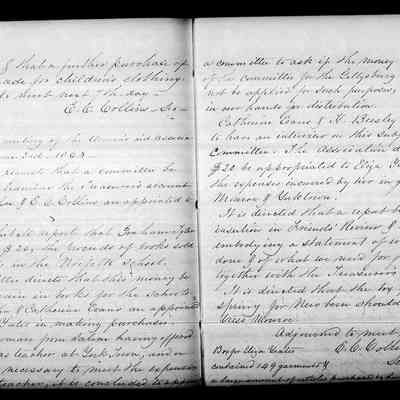 & that a further purchase of
made for children's clothing.
to meet next 7th day —
E. C. Collins Sec —
meeting of the Women's Aid Associa
mo 3rd 1864.
request that a committee be
examine the Treasurer's account
& E. C. Collins are appointed to
report that
$20, the proceeds of books sold
in the Norfolk School.
directs that this money be
in books for the Schools
& Catharine Evans are appointed
Yates in making purchases.
woman from having offered
as teacher at York Town, and
necessary to meet the expenses
teacher, it is concluded to app
a committee to ask if the money
of the committee for the Gettysburg
not be applied for such purposes,
in our hands for distribution.
Catharine Evans & H. Beesley
to have an interview on this subj
Committee. The Association d
$20 be appropriated to Eliza
the expenses incurred by her in g
Monroe & Yorktown.
It is directed that a report be
insertion in Friends' Review &
embodying a statement of w
done & of what we need for
together with the Treasurer's
It is directed that the
for New bern should
Monroe
Adjourned to meet
E. C. Colli
Box for Eliza Yates
contained 149 garments &
a large amount of articles purchased by